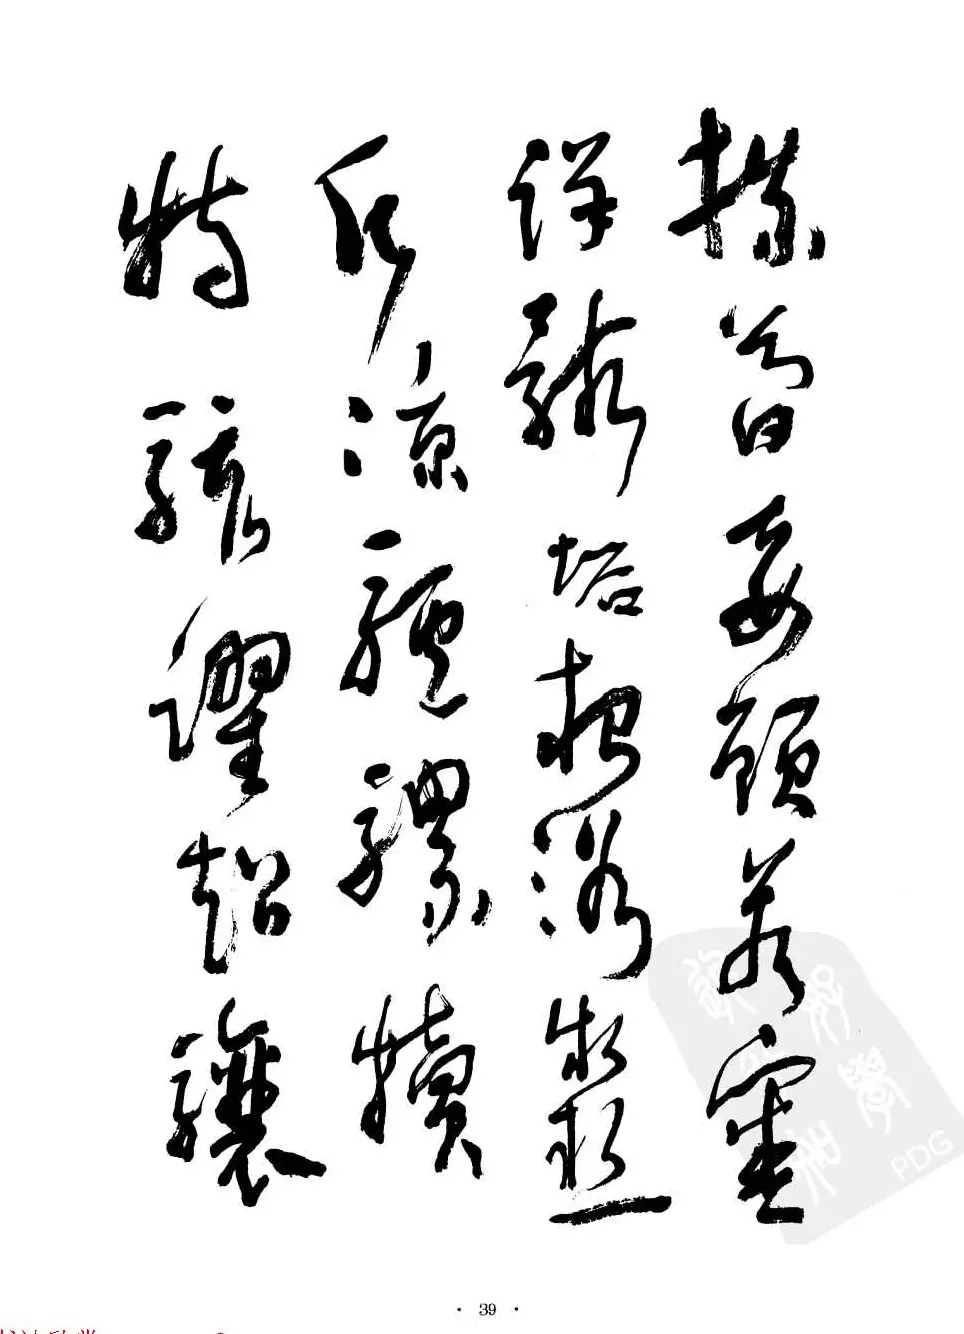 牒簡要顧答審
詳骸垢想浴執熱
願凉驢騾犢
特駭躍超驤
· 39 ·